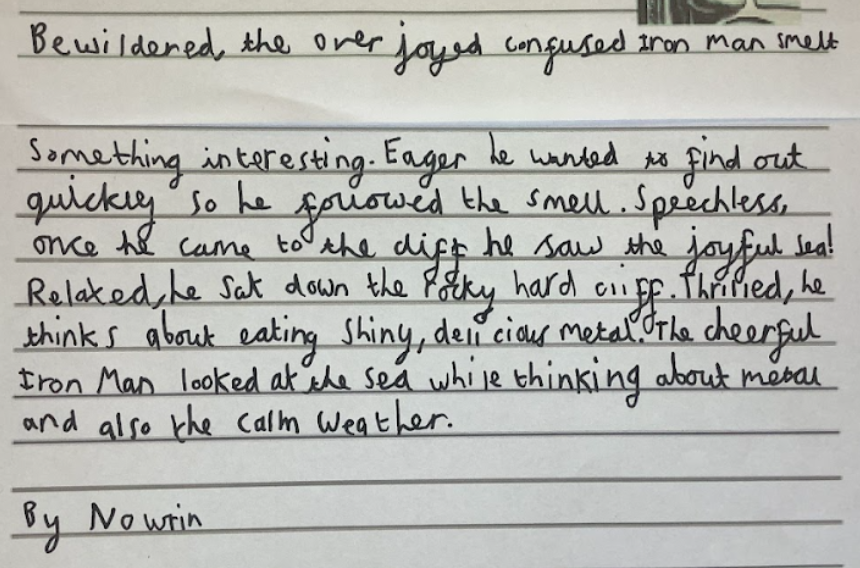 Bewildered, the over joyed confused Iron man smelt
Something interesting. Eager he wanted to find out
quickly so he followed the smell. Speechless,
once he came to the cliff he saw the joyful sea!
Relaxed, he sat down the rocky hard cliff. Thrilled, he
thinks about eating shiny, delicious metal. The cheerful
Iron Man looked at the sea while thinking about metal
and also the calm weather.
By Nowrin